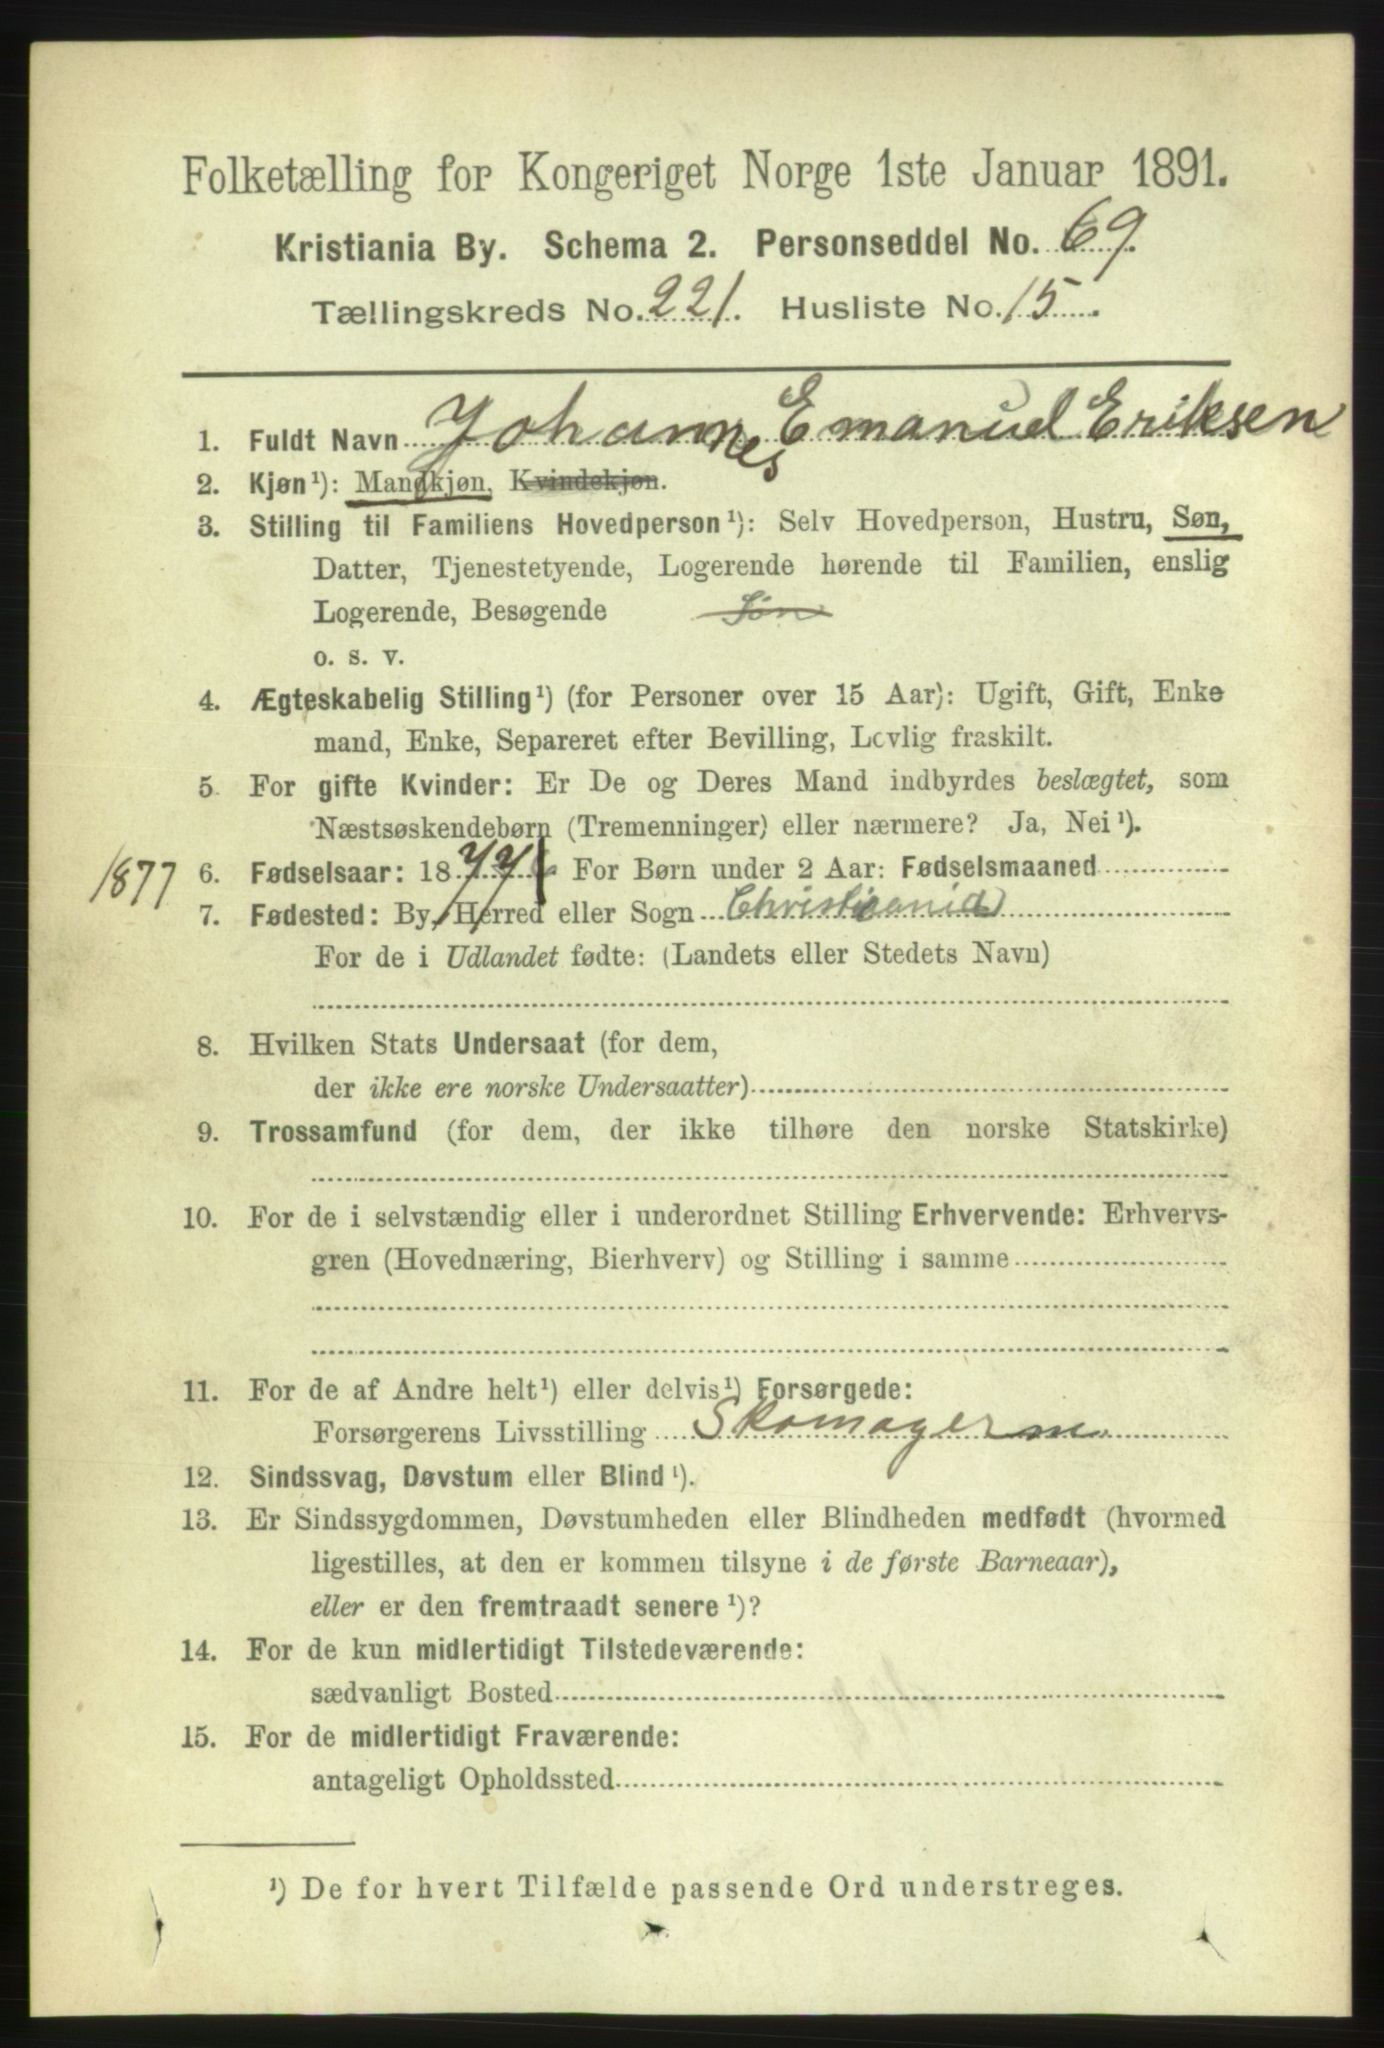 Folketælling for Kongeriget Norge 1ste Januar 1891.
Kristiania By. Schema 2. Personseddel No. 69.
Tællingskreds No. 221. Husliste No. 15.
1. Fuldt Navn Johannes Emanuel Eriksen
2. Kjøn¹): Mandkjøn, Kvindekjøn.
3. Stilling til Familiens Hovedperson¹): Selv Hovedperson, Hustru, Søn,
Datter, Tjenestetyende, Logerende hørende til Familien, enslig
Logerende, Besøgende Søn
o. s. v.
4. Ægteskabelig Stilling¹) (for Personer over 15 Aar): Ugift, Gift, Enke
mand, Enke, Separeret efter Bevilling, Lovlig fraskilt.
5. For gifte Kvinder: Er De og Deres Mand indbyrdes beslægtet, som
Næstsøskendebørn (Tremenninger) eller nærmere? Ja, Nei¹).
1877 6. Fødselsaar: 1877 For Børn under 2 Aar: Fødselsmaaned
7. Fødested: By, Herred eller Sogn Christiania
For de i Udlandet fødte: (Landets eller Stedets Navn)
8. Hvilken Stats Undersaat (for dem,
der ikke ere norske Undersaatter)
9. Trossamfund (for dem, der ikke tilhøre den norske Statskirke)
10. For de i selvstændig eller i underordnet Stilling Erhvervende: Erhvervs-
gren (Hovednæring, Bierhverv) og Stilling i samme
11. For de af Andre helt¹) eller delvis¹) Forsørgede:
Forsørgerens Livsstilling Skomagerm.
12. Sindssvag, Døvstum eller Blind¹).
13. Er Sindssygdommen, Døvstumheden eller Blindheden medfødt (hvormed
ligestilles, at den er kommen tilsyne i de første Barneaar),
eller er den fremtraadt senere¹)?
14. For de kun midlertidigt Tilstedeværende:
sædvanligt Bosted
15. For de midlertidigt Fraværende:
antageligt Opholdssted
¹) De for hvert Tilfælde passende Ord understreges.